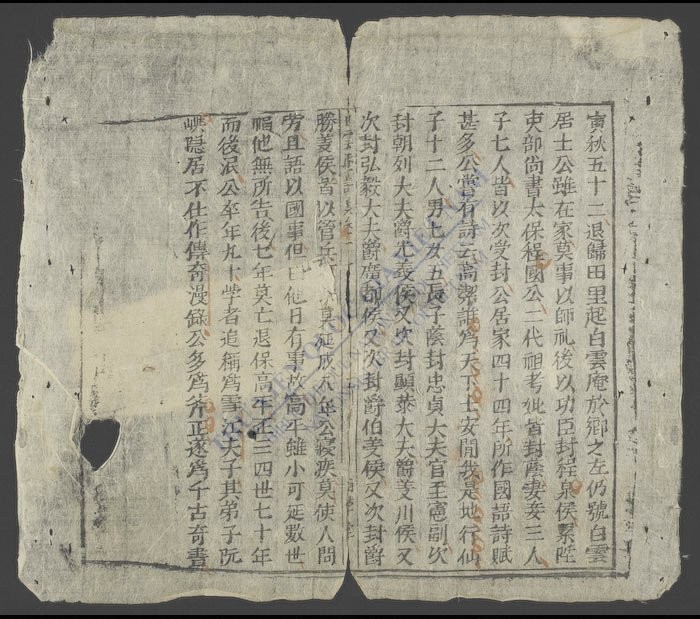 寅秋五十二退歸田里起白雲庵於鄉之左仍號白雲
居士公雖在家莫事以師礼後以功臣封程泉侯累陞
吏部尚書太保程國公二代祖考妣皆封蔭妻妾三人
子七人皆以次受封公居家四十四年所作國語詩賦
甚多公嘗有詩云高潔誰爲天下士安閒我是地行仙
子十二人男七女五長子蔭封忠貞大夫官至憲副次
封朝列大夫爵光義侯又次封顯菉大夫爵義川侯又
次封弘毅大夫爵廣都侯又次封爵伯義侯又次封爵
勝義侯皆以管兵 莫延成八年公寢疾莫使人問
労且語以國事但曰他日有事故高平雖小可延數世
福他無所告後七年莫亡退保高平正三四世七十年
而後泯公卒年九十學者追稱爲雪江夫子其弟子阮
嶼隱居不仕作傳奇漫錄公多爲斧正遂爲千古奇書